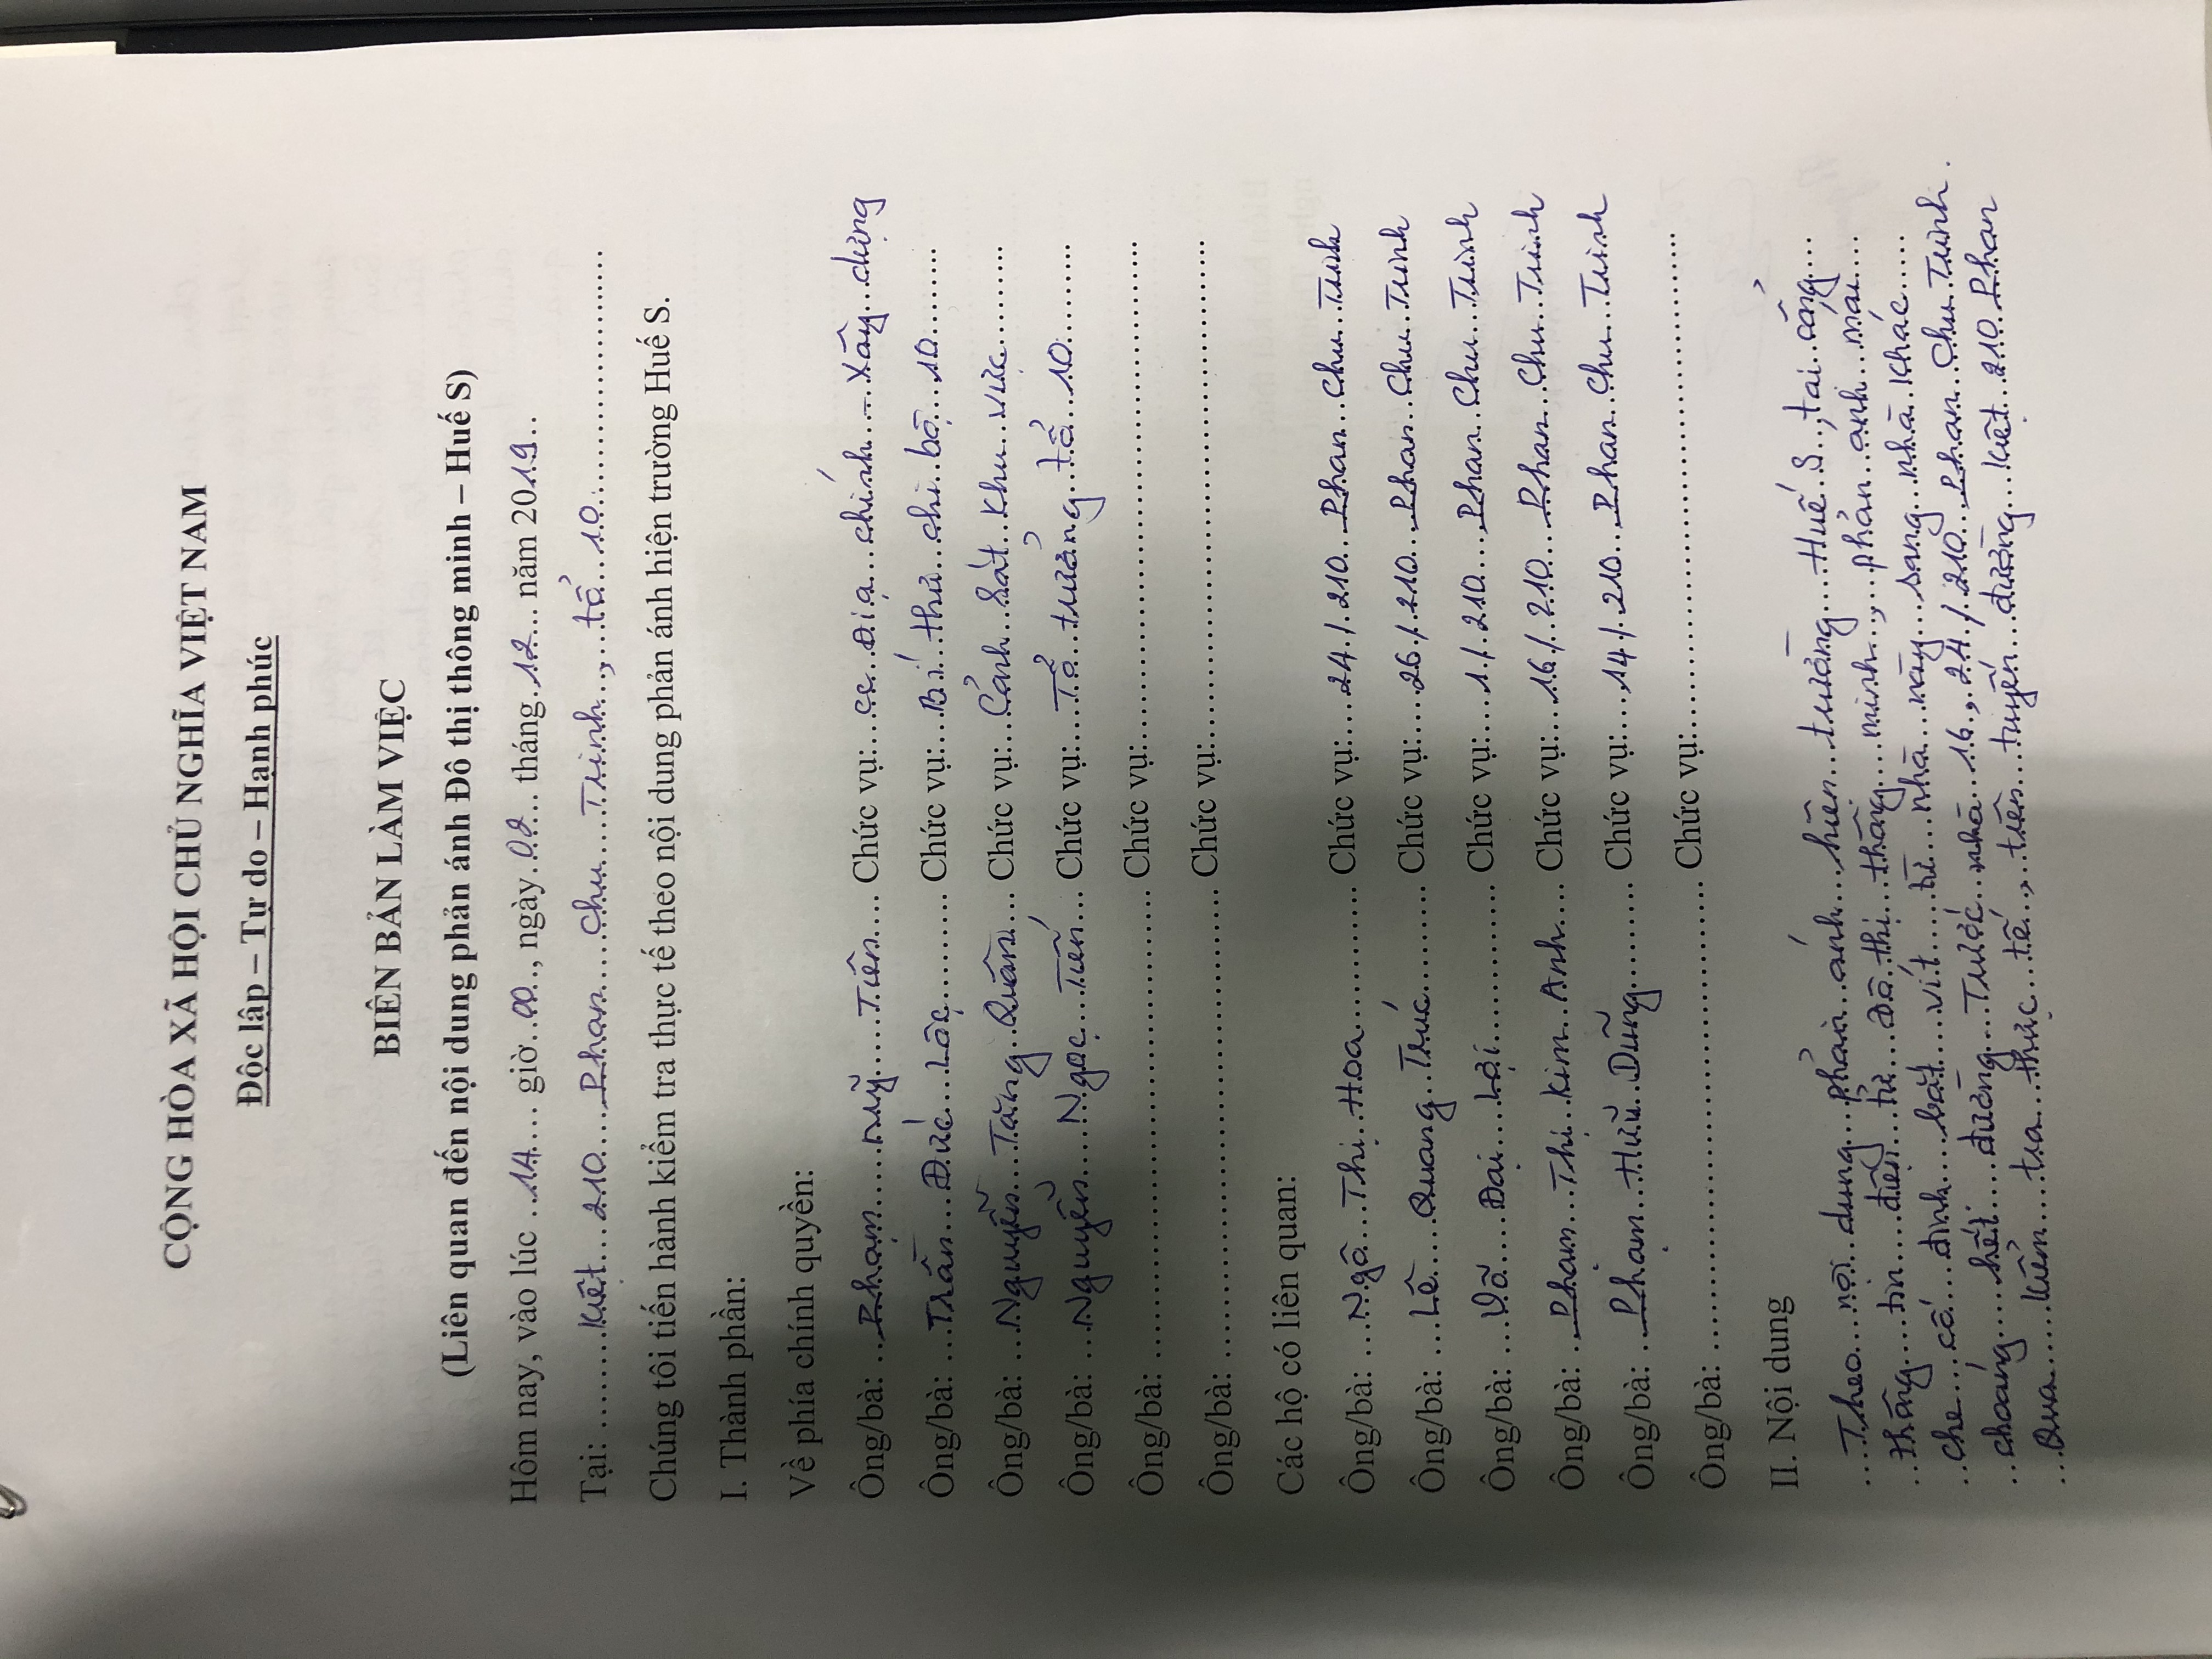 CỘNG HÒA XÃ HỘI CHỦ NGHĨA VIỆT NAM
Độc lập – Tự do – Hạnh phúc
BIÊN BẢN LÀM VIỆC
(Liên quan đến nội dung phản ánh Đô thị thông minh – Huế S)
Hôm nay, vào lúc ..14.... giờ..00.., ngày..02... tháng.12... năm 2019..
Tại: .........Kiệt....210....Phan.....Chu....Trinh..,...tổ...10.........................
Chúng tôi tiến hành kiểm tra thực tế theo nội dung phản ánh hiện trường Huế S.
I. Thành phần:
Về phía chính quyền:
Ông/bà: ...Phạm.......Mỹ.....Tiên.... Chức vụ:...CC...Địa...chính...–..Xây..dựng
Ông/bà: ...Trần....Đức...Lộc........... Chức vụ:...Bí..thư...chi..bộ...10.........
Ông/bà: ...Nguyễn...Tăng..Quân... Chức vụ:...Cảnh..Sát..Khu..vực..........
Ông/bà: ...Nguyễn.....Ngọc..Tiến... Chức vụ:....Tổ..trưởng..tổ...10..........
Ông/bà: ............................................ Chức vụ:............................................
Ông/bà: ............................................ Chức vụ:............................................
Các hộ có liên quan:
Ông/bà: ...Ngô...Thị..Hoa............ Chức vụ:....24./.210..Phan..Chu..Trinh
Ông/bà: ...Lê....Quang..Trúc.......... Chức vụ:....26./.210...Phan..Chu..Trinh
Ông/bà: ...Võ...Đại....Lợi............. Chức vụ:....1./.210....Phan..Chu..Trinh
Ông/bà: ..Phạm...Thị..Kim..Anh.... Chức vụ:...16./.210...Phan..Chu..Trinh
Ông/bà: ..Phạm..Hữu..Dũng.......... Chức vụ:....14./.210..Phan..Chu..Trinh
Ông/bà: ............................................ Chức vụ:............................................
II. Nội dung
....Theo....nội..dung...phản..ánh...hiện...trường...Huế..S..,tại..cổng....
..thông....tin....điện..tử...Đô..thị..thông....minh..,..phản..ánh...mái....
..che....cố....định....bắt...vít....từ...nhà...này...sang..nhà..khác.....
..choáng.....hết....đường....Trước..nhà...16.,.24./.210...Phan..Chu..Trinh.
...Qua.....kiểm....tra...thực...tế..,..trên...tuyến....đường....kiệt..210..Phan